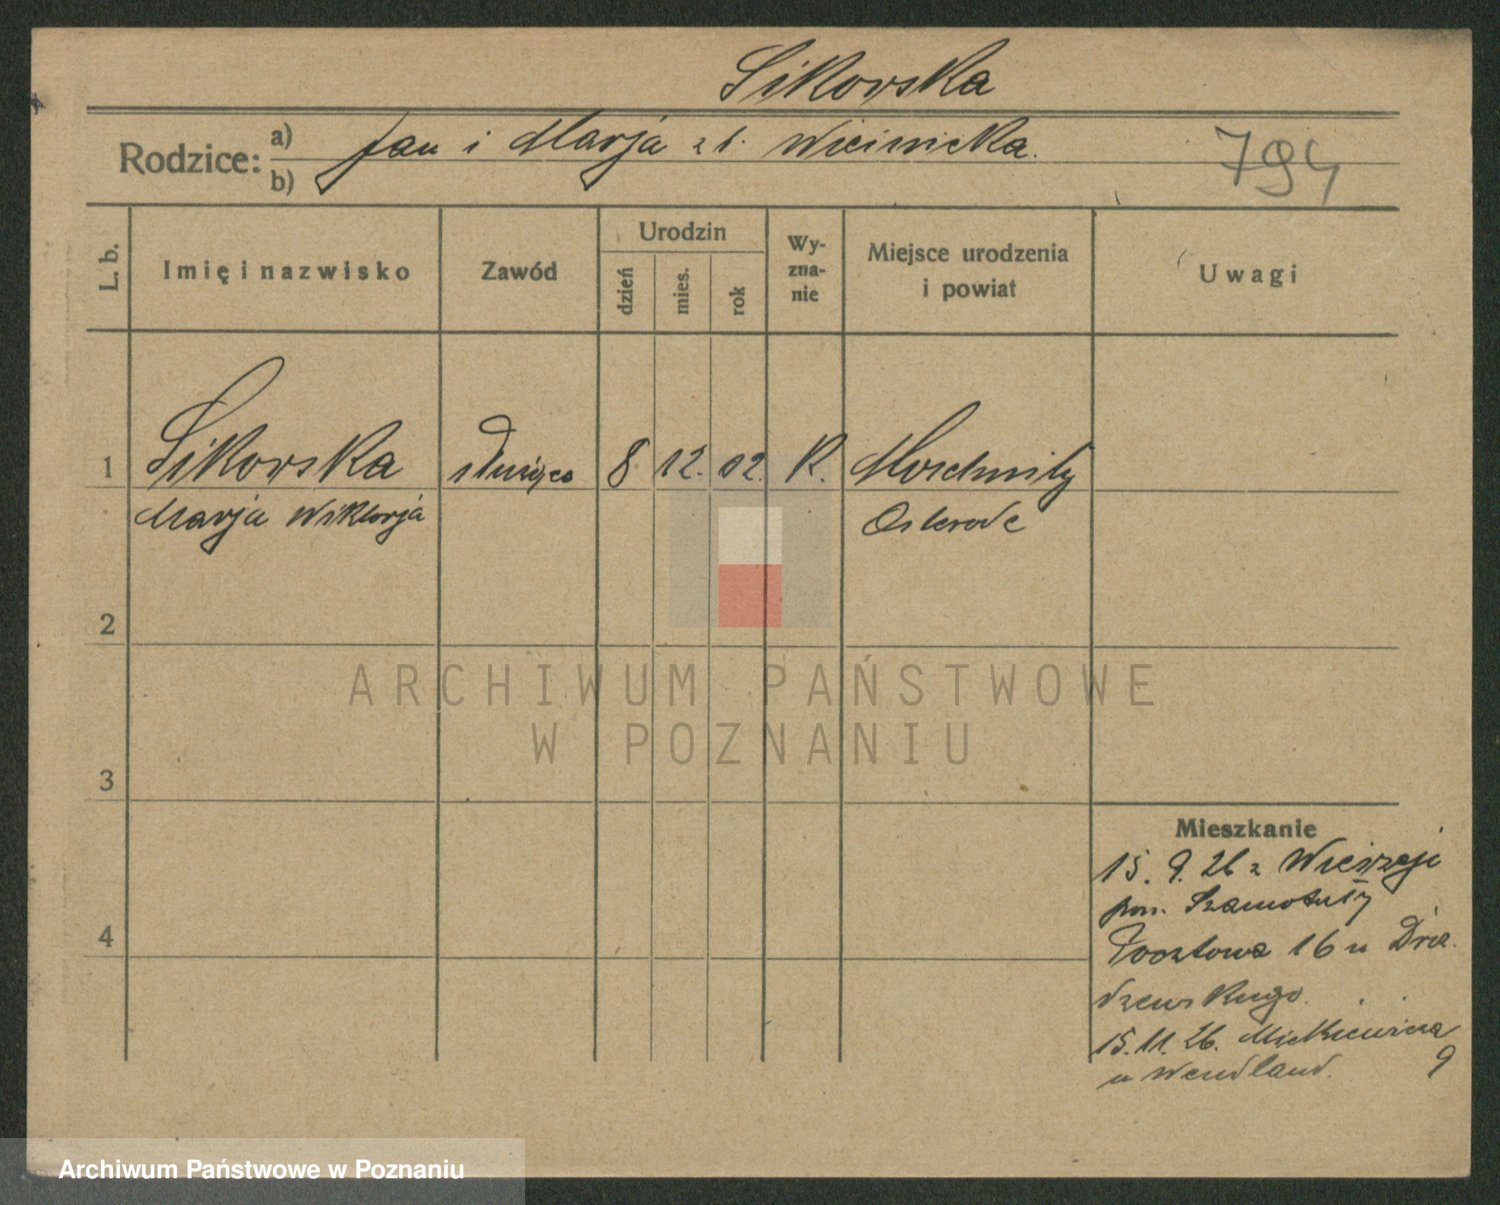 Sikorska
Rodzice: a) Jan i Marja z d.
b)
794
L. b.
Imię i nazwisko
Zawód
Urodzin
dzień
mies.
rok
Wy-
zna-
nie
Miejsce urodzenia
i powiat
Uwagi
1 Sikorska służąca 8 12. 02. K.
Marja Wiktorja Osterode
2
3
4
Mieszkanie
15. 9. 26 z
pow. Szamotuły
Pocztowa 16 u Drze-
dzewskiego.
15. 11. 26. Mickiewicza
9
u Wendland.
ARCHIWUM PAŃSTWOWE
W POZNANIU
Archiwum Państwowe w Poznaniu